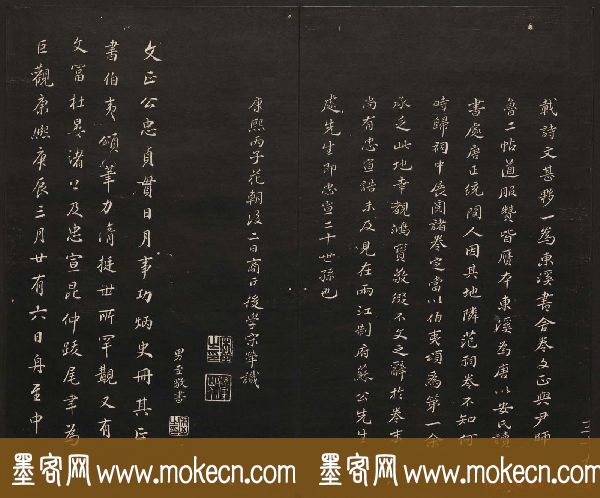 載詩文甚夥一為東溪書舍卷文正與尹師
魯二帖道服贊皆曆本東溪為唐以安民讀
書處唐正統間人因其地隣范祠卷不知何
時歸祠中展閱諸卷定當以伯夷頌為第一余
承乏此地幸觀鴻寶敬綴不文之辭於卷末
尚有忠宣誥未及見在兩江制府蘇公先生
處先生即忠宣二十世孫也
康熙丙子花朝後二日商丘後學宋犖識
男至敬書
文正公忠貞貫日月事功炳史冊其正
書伯夷頌筆力清挺世所罕觀又有
文富杜晏諸公及忠宣昆仲跋尾聿為
巨觀康熙庚辰三月廿有六日舟至中
墨客网 www.mokecn.com 墨客网 www.mokecn.com